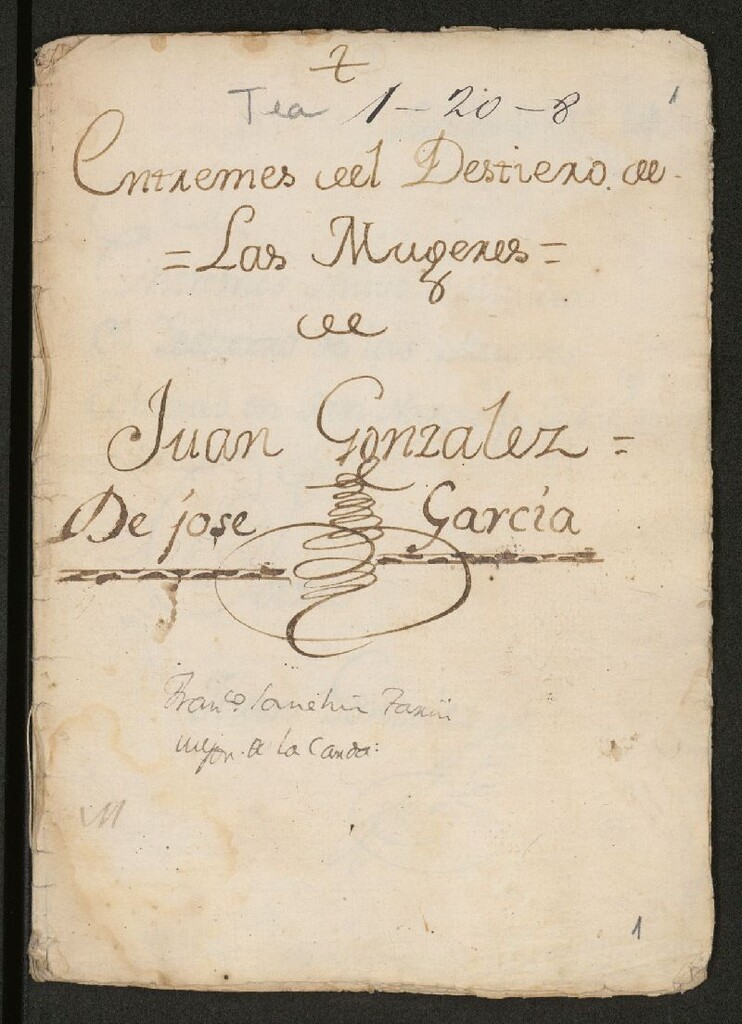 Tea 1-20-8
1
Entremes del Destierro de
= Las Mugeres =
de
Juan Gonzalez =
De jose Garcia
Franco.
de la Canda:
M
1